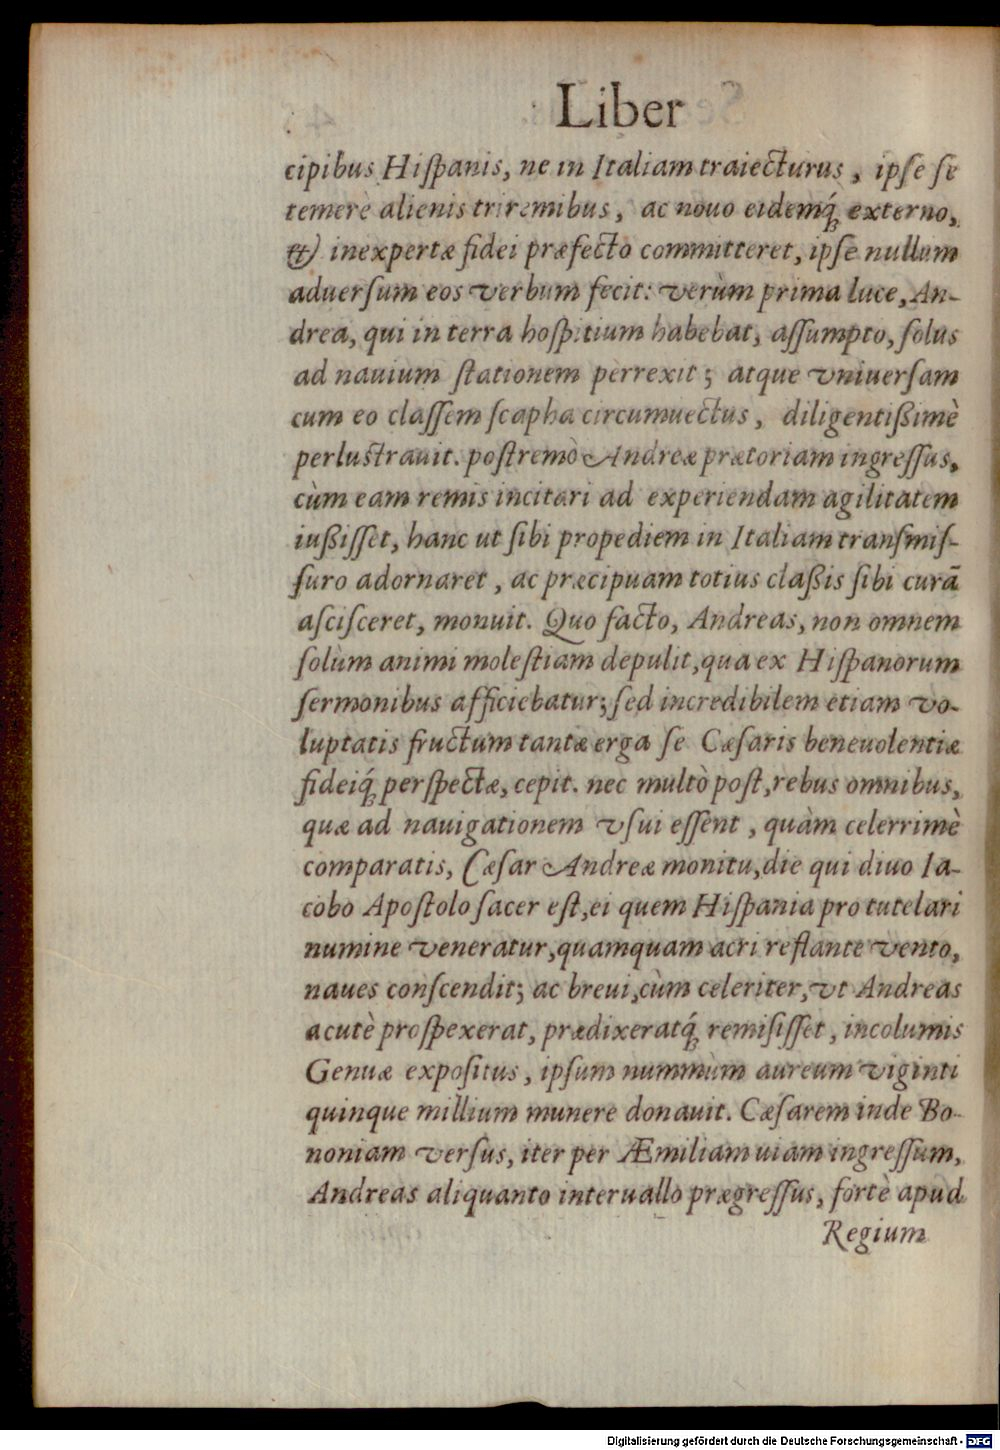 Liber
cipibus Hiſpanis, ne in Italiam traiecturus, ipſe ſe
temerè alienis triremibus, ac nouo eidemq́; externo,
& inexpertæ fidei præfecto committeret, ipſe nullum
aduerſum eos verbum fecit: verùm prima luce, An-
drea, qui in terra hoſpitium habebat, aſſumpto, ſolus
ad nauium ſtationem perrexit; atque vniuerſam
cum eo claſſem ſcapha circumuectus, diligentißimè
perluſtrauit. poſtremò Andreæ prætoriam ingreſſus,
cùm eam remis incitari ad experiendam agilitatem
iußiſſet, hanc ut ſibi propediem in Italiam tranſmiſ-
ſuro adornaret, ac præcipuam totius claßis ſibi curā
aſciſceret, monuit. Quo facto, Andreas, non omnem
ſolùm animi moleſtiam depulit, qua ex Hiſpanorum
ſermonibus afficiebatur; ſed incredibilem etiam vo-
luptatis fructum tantæ erga ſe Cæſaris beneuolentiæ
fideiq́; perſpectæ, cepit. nec multò poſt, rebus omnibus,
quæ ad nauigationem vſui eſſent, quàm celerrimè
comparatis, Cæſar Andreæ monitu, die qui diuo Ia-
cobo Apoſtolo ſacer eſt, ei quem Hiſpania pro tutelari
numine veneratur, quamquam acri reflante vento,
naues conſcendit; ac breui, cùm celeriter, vt Andreas
acutè proſpexerat, prædixeratq́; remiſiſſet, incolumis
Genuæ expoſitus, ipſum nummùm aureum viginti
quinque millium munere donauit. Cæſarem inde Bo-
noniam verſus, iter per Æmiliam uiam ingreſſum,
Andreas aliquanto interuallo prægreſſus, fortè apud
Regium
Digitalisierung gefördert durch die Deutsche Forschungsgemeinschaft - DFG